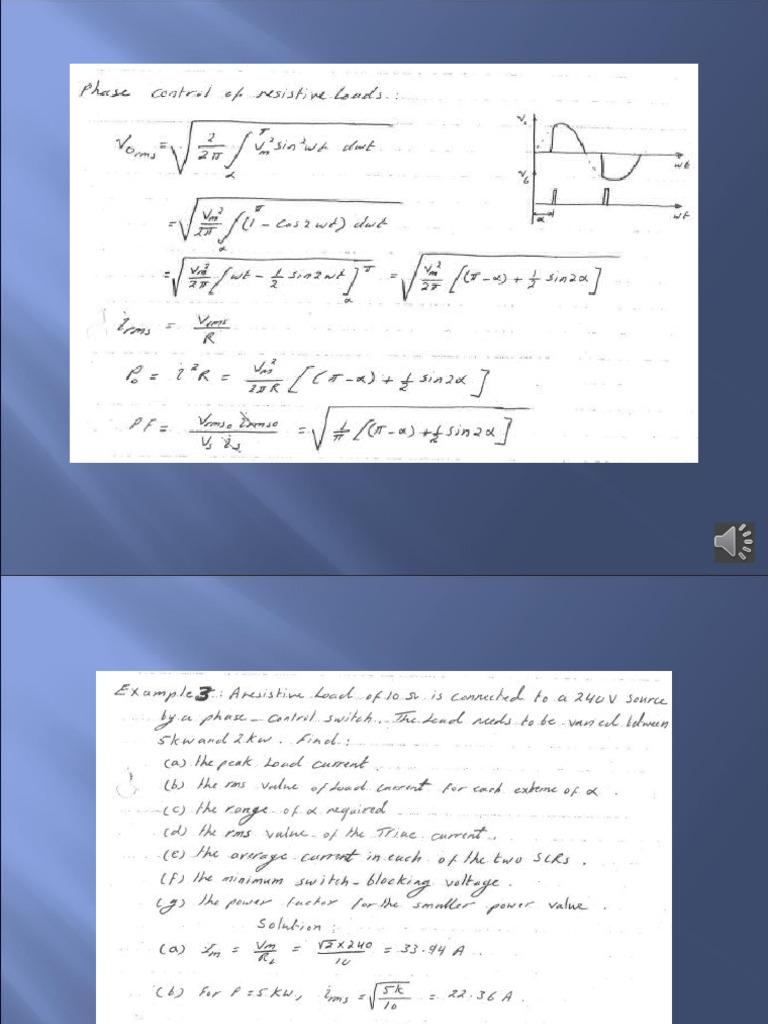 Phase control of resistive loads:
V₀rms = √( 2/2π ∫_α^π Vm² sin² wt dwt )
V₀
wt
VG
α
wt
= √( Vm²/2π ∫_α^π (1 - Cos 2wt) dwt )
= √( Vm²/2π [ wt - 1/2 sin2wt ]_α^π ) = √( Vm²/2π [ (π-α) + 1/2 sin2α ] )
irms = Vrms/R
P₀ = i²R = Vm²/2πR [ (π-α) + 1/2 sin2α ]
PF = Vrms₀ irms₀ / Vs is = √( 1/π [ (π-α) + 1/2 sin2α ] )
Example 3: A resistive Load of 10 Ω is connected to a 240V source
by a phase-control switch. The Load needs to be varied between
5kw and 2kw. Find:
(a) the peak Load current.
(b) the rms value of Load current for each exteme of α.
(c) the range of α required
(d) the rms value of the Triac current.
(e) the average current in each of the two SCRs.
(f) the minimum switch-blocking voltage.
(g) the power factor for the smaller power value.
Solution:
(a) Im = Vm/RL = √2×240/10 = 33.94 A
(b) For P=5KW, irms = √(5k/10) = 22.36 A.